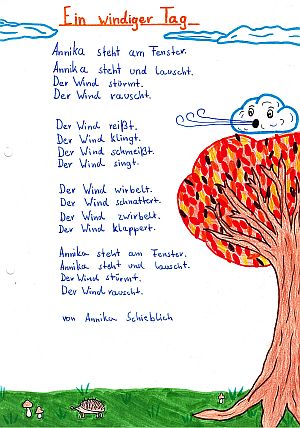 Ein windiger Tag
Annika steht am Fenster.
Annika steht und lauscht.
Der Wind stürmt.
Der Wind rauscht.
Der Wind reißt.
Der Wind klingt.
Der Wind schmeißt.
Der Wind singt.
Der Wind wirbelt.
Der Wind schnattert.
Der Wind zwirbelt.
Der Wind klappert.
Annika steht am Fenster.
Annika steht und lauscht.
Der Wind stürmt.
Der Wind rauscht.
von Annika Schieblich